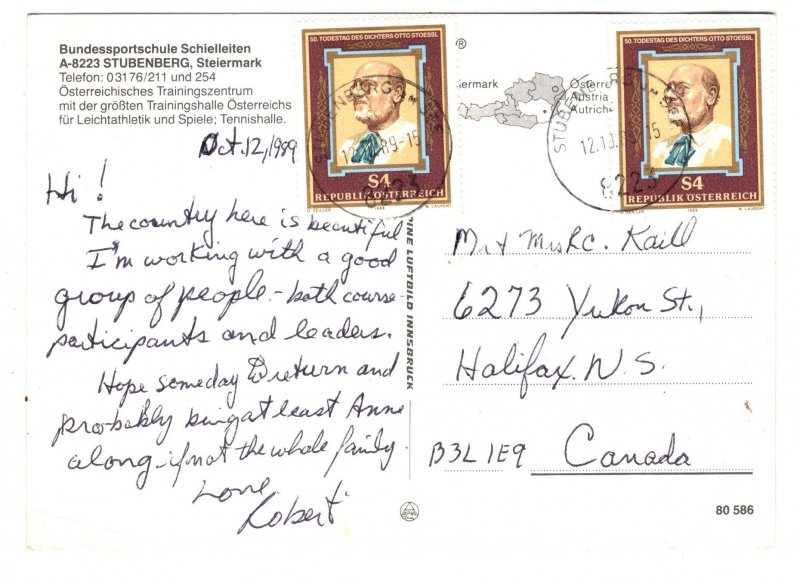 Bundessportschule Schielleiten
A-8223 STUBENBERG, Steiermark
Telefon: 03176/211 und 254
Österreichisches Trainingszentrum
mit der größten Trainingshalle Österreichs
für Leichtathletik und Spiele; Tennishalle.
Oct. 12, 1989
Hi!
The country here is beautiful
I'm working with a good
group of people - both course
participants and leaders.
Hope someday to return and
probably bring at least Anne
along - if not the whole family.
Love
Robert
50. TODESTAG DES DICHTERS OTTO STOESSL
S4
REPUBLIK ÖSTERREICH
50. TODESTAG DES DICHTERS OTTO STOESSL
S4
REPUBLIK ÖSTERREICH
12.10.89-15
8223
12.10.89-15
8223
®
eiermark
Österre
Austria
Autrich
PINE LUFTBILD INNSBRUCK
Mr + Mrs R.C. Kaill
6273 Yukon St.,
Halifax, N.S.
B3L 1E9 Canada
80 586